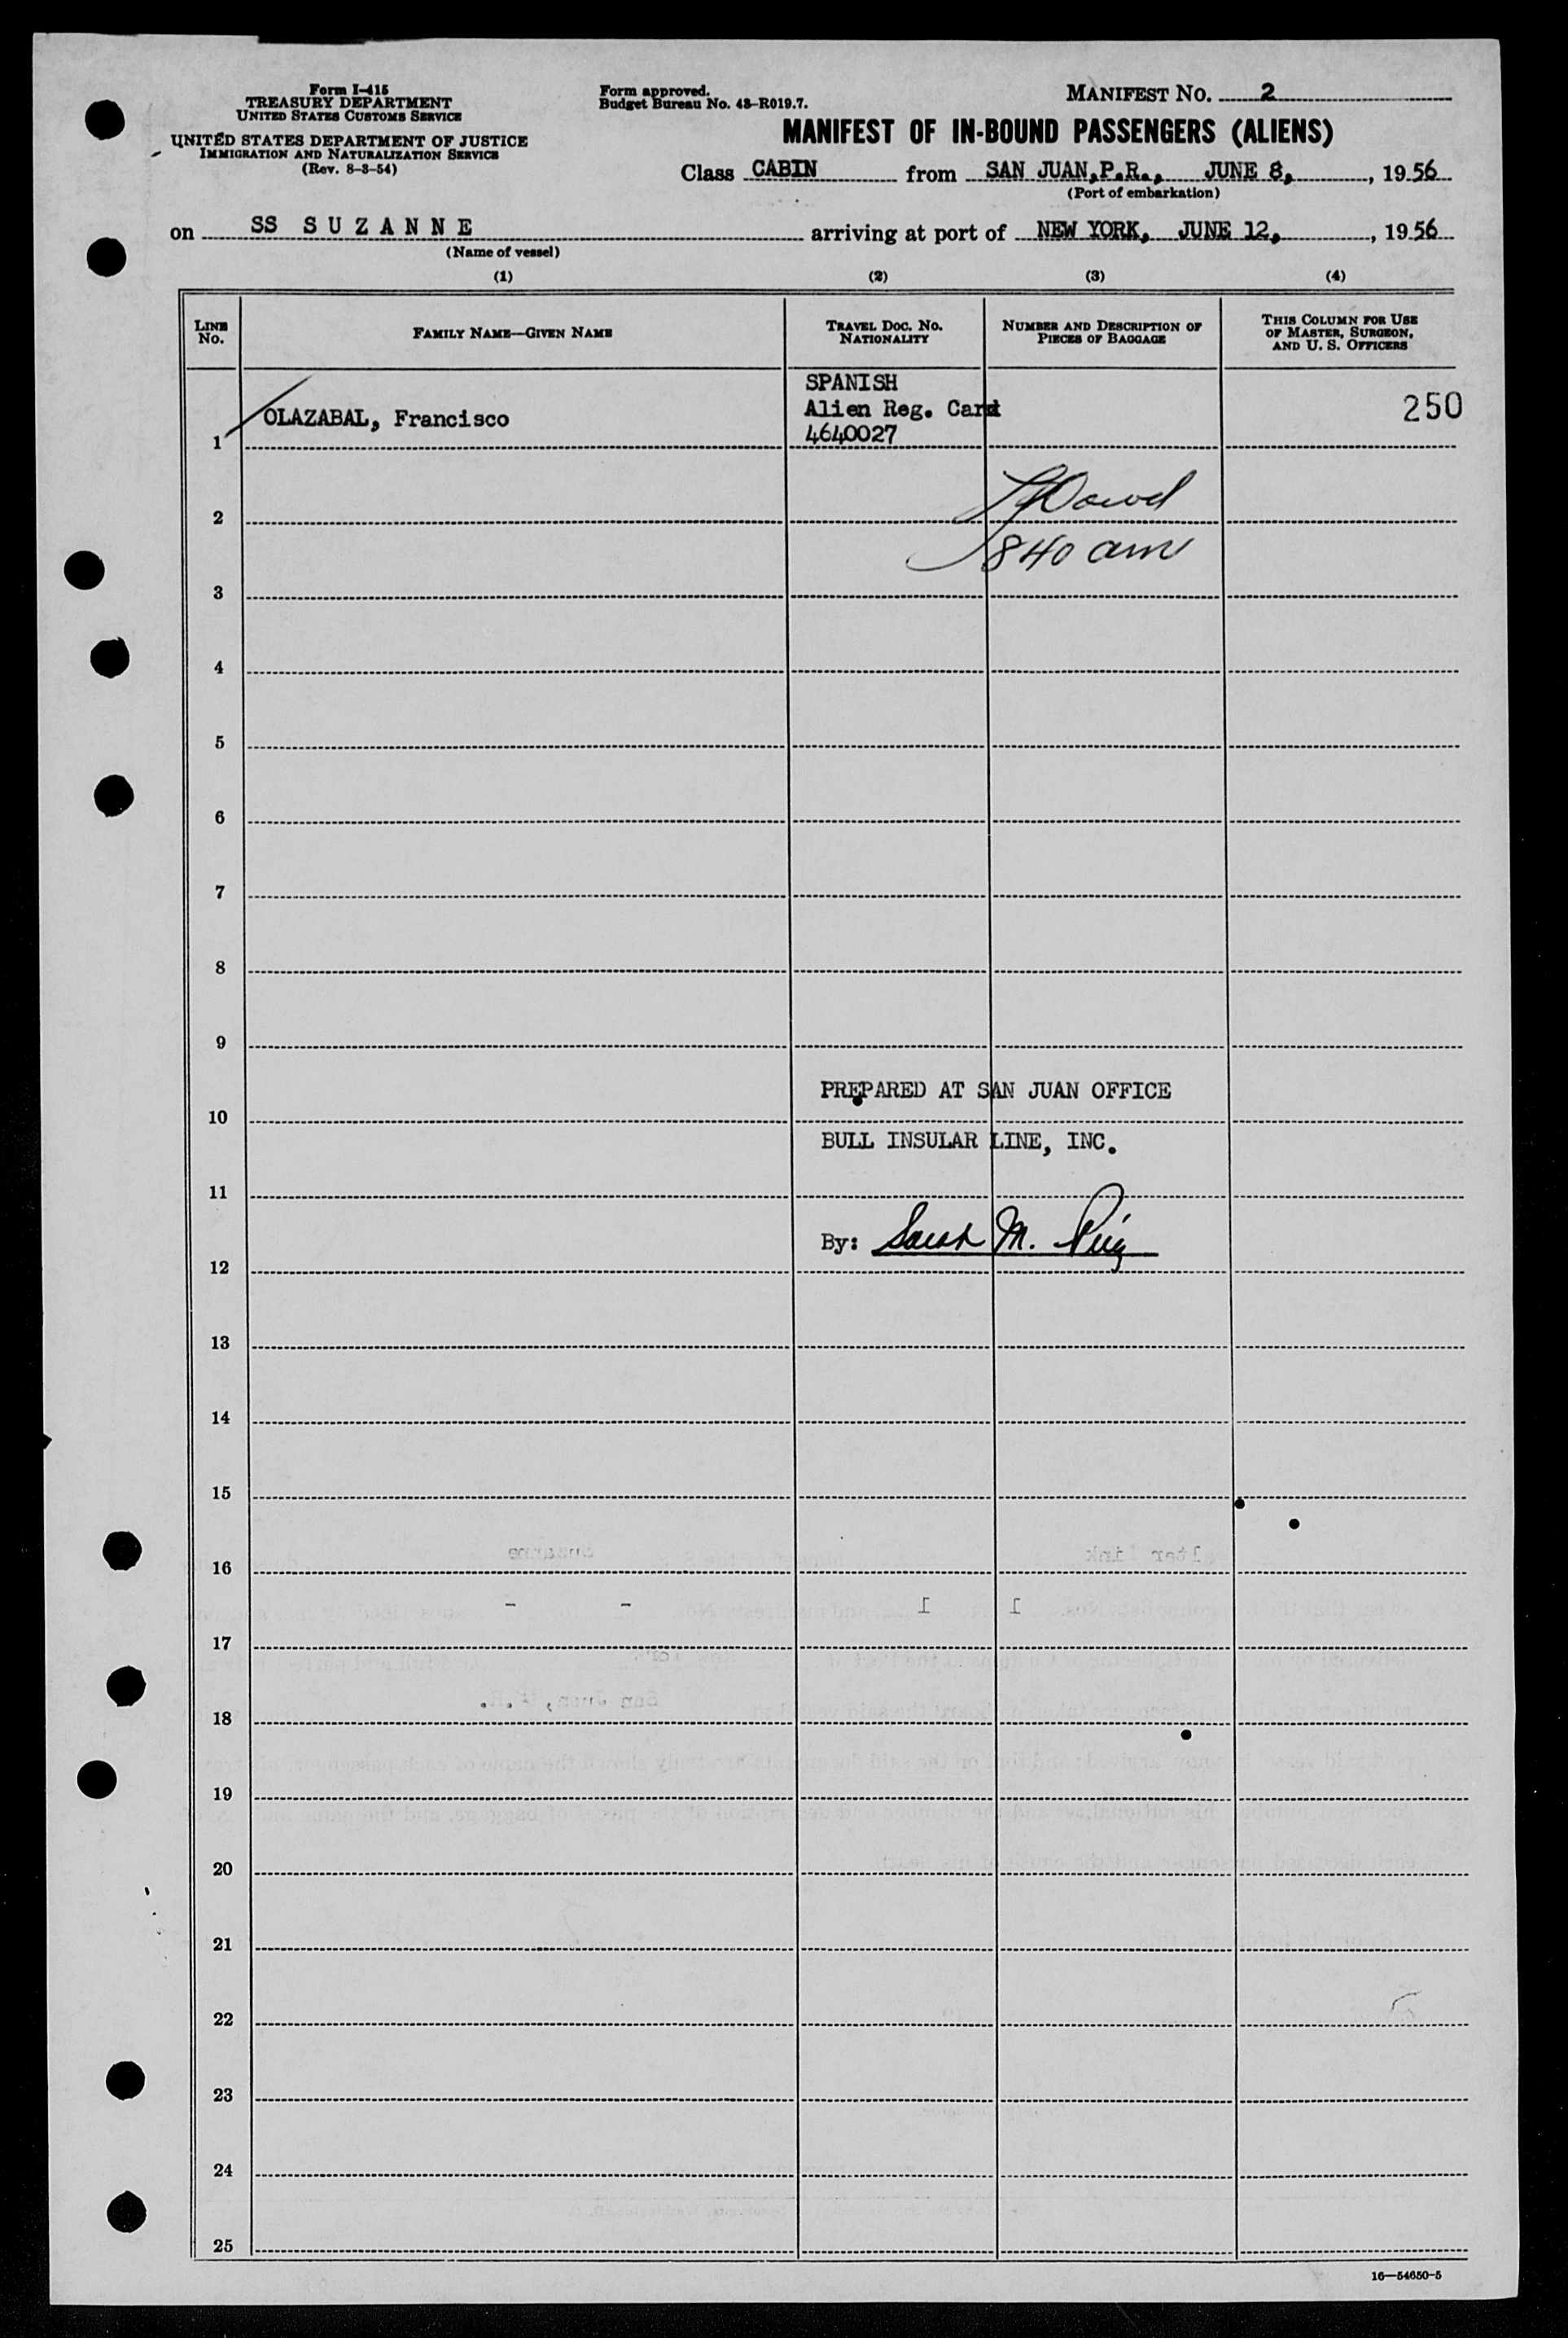 Form I-415
TREASURY DEPARTMENT
UNITED STATES CUSTOMS SERVICE
UNITED STATES DEPARTMENT OF JUSTICE
IMMIGRATION AND NATURALIZATION SERVICE
(Rev. 8-3-54)
Form approved.
Budget Bureau No. 43-R019.7.
MANIFEST NO. 2
MANIFEST OF IN-BOUND PASSENGERS (ALIENS)
Class CABIN from SAN JUAN, P.R., JUNE 8, , 1956
(Port of embarkation)
on SS SUZANNE arriving at port of NEW YORK, JUNE 12, , 1956
(Name of vessel)
(1) (2) (3) (4)
LINE NO.
FAMILY NAME—GIVEN NAME
TRAVEL DOC. NO.
NATIONALITY
NUMBER AND DESCRIPTION OF
PIECES OF BAGGAGE
THIS COLUMN FOR USE
OF MASTER, SURGEON,
AND U. S. OFFICERS
1 OLAZABAL, Francisco
SPANISH
Alien Reg. Card
4640027
250
2
840 am
3
4
5
6
7
8
9
PREPARED AT SAN JUAN OFFICE
10
BULL INSULAR LINE, INC.
11
By: Sarah M. Puig
12
13
14
15
16
17
18
19
20
21
22
23
24
25
16—54650-5